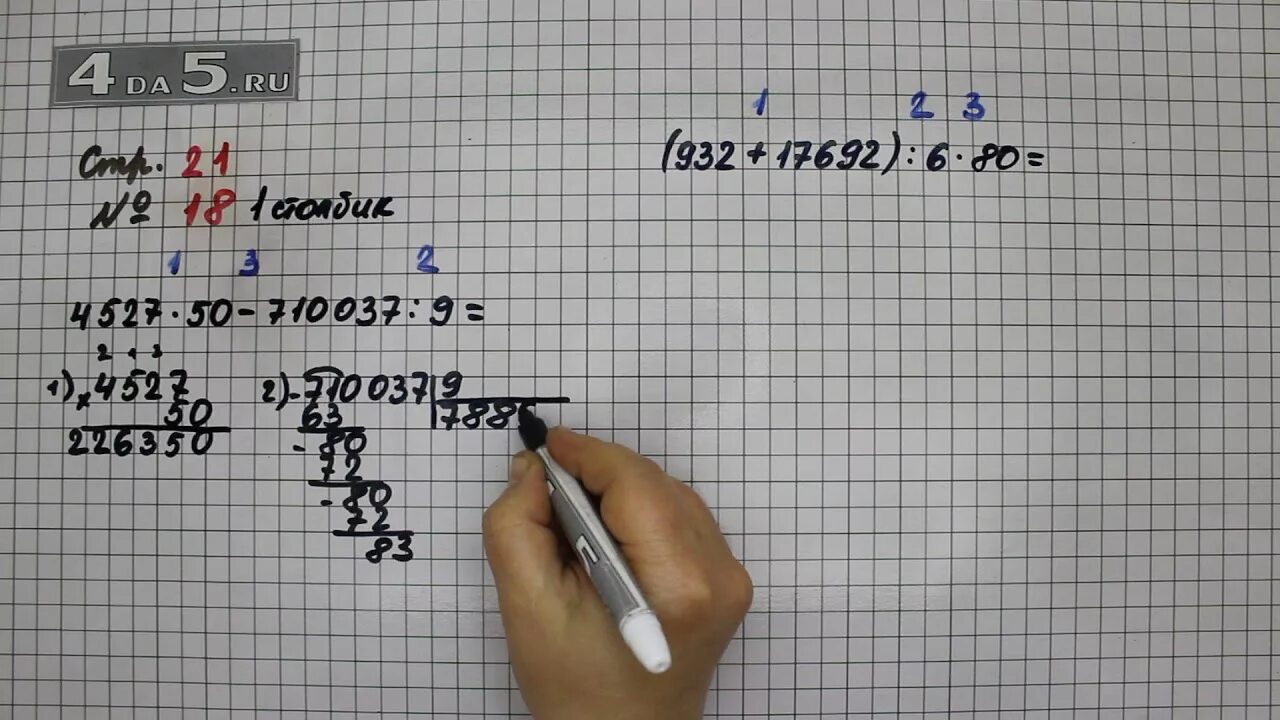 4 DA 5.RU
Стр. 21
№ 18 1 столбик
1 3 2
4527·50-710037:9=
2 1 3
1) × 4527
50
226350
2) - 710037 9
63 788
- 80
72
- 80
72
83
1 2 3
(932+17692):6·80=